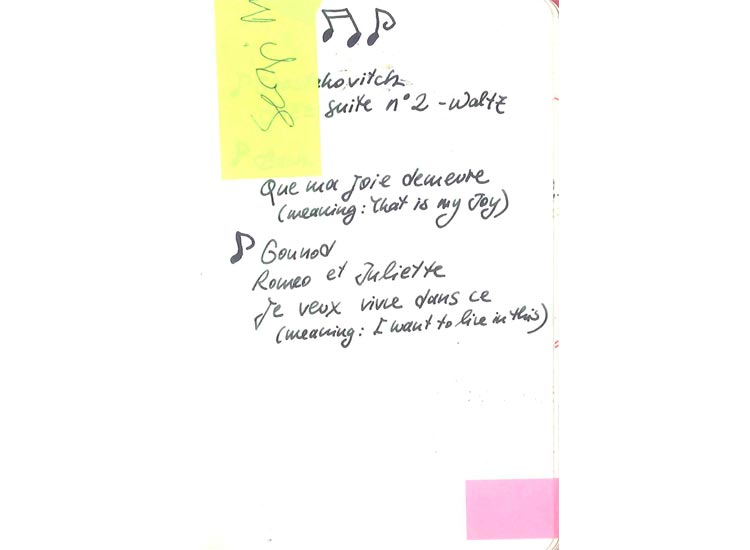 suite n°2 - Waltz
Que ma joie demeure
(meaning: that is my Joy)
Gounod
Romeo et Juliette
Je veux vivre dans ce
(meaning: I want to live in this)